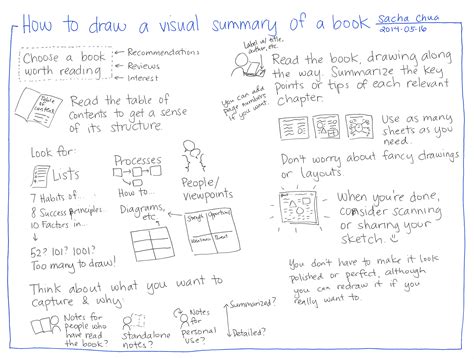 How to draw a visual summary of a book
Sacha Chua
2014-05-16
Choose a book
worth reading.
Recommendations
Reviews
Interest
Table of
Contents
Read the table of
contents to get a sense
of its structure.
Look for:
Lists
7 Habits of...
8 Success principles...
10 Factors in...
52? 101? 1001?
Too many to draw!
Processes
How to...
Diagrams,
etc.
People/
viewpoints
Strength
Opportunity
Weakness
Threat
Think about what you want to
capture & why:
Notes for
people who
have read
the book?
standalone
notes?
Notes for
personal
use?
Summarized?
Detailed?
Label w/ title,
author, etc.
You can add
page numbers
if you want.
Read the book, drawing along
the way. Summarize the key
points or tips of each relevant
chapter.
Use as many
sheets as you
need.
Don't worry about fancy drawings
or layouts.
When you're done,
consider scanning
or sharing your
sketch.
You don't have to make it look
polished or perfect, although
you can redraw it if you
really want to.